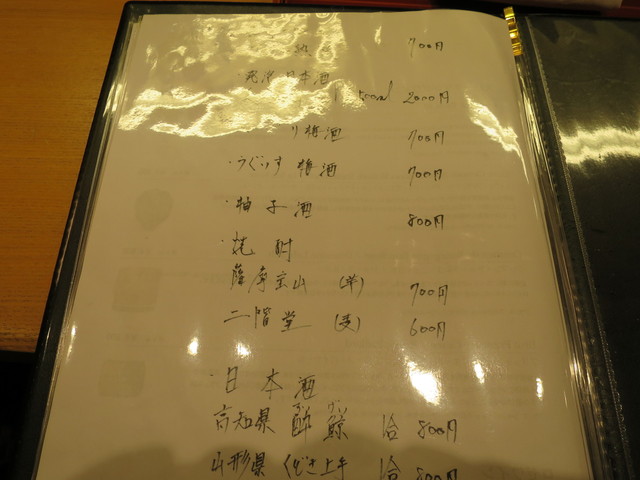 700円
日本酒
2000円
り梅酒 700円
・うぐいす梅酒 700円
・柚子酒 800円
・焼酎
薩摩宝山 (芋) 700円
二階堂 (麦) 600円
・日本酒
高知県 酔鯨 1合 800円
山形県 くどき上手 1合 800円